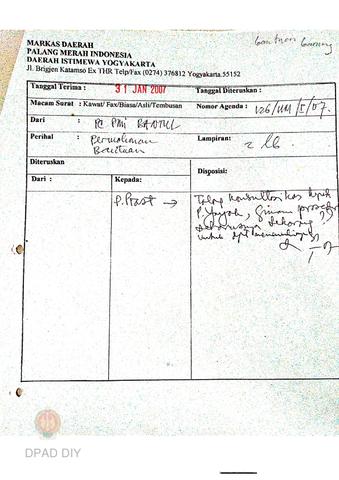 Bantuan
MARKAS DAERAH
PALANG MERAH INDONESIA
DAERAH ISTIMEWA YOGYAKARTA
Jl. Brigjen Katamso Ex THR Telp/Fax (0274) 376812 Yogyakarta.55152
Tanggal Terima : 31 JAN 2007 Tanggal Diteruskan :
Macam Surat : Kawat/ Fax/Biasa/Asli/Tembusan Nomor Agenda : 126/UM/I/07.
Dari : PC PMI BANTUL
Perihal : Permohonan Lampiran: 2 lb
Bantuan
Diteruskan Disposisi:
Dari : Kepada:
P. Prast → Tolong konsultasikan kpd
P.
untuk dpt
DPAD DIY